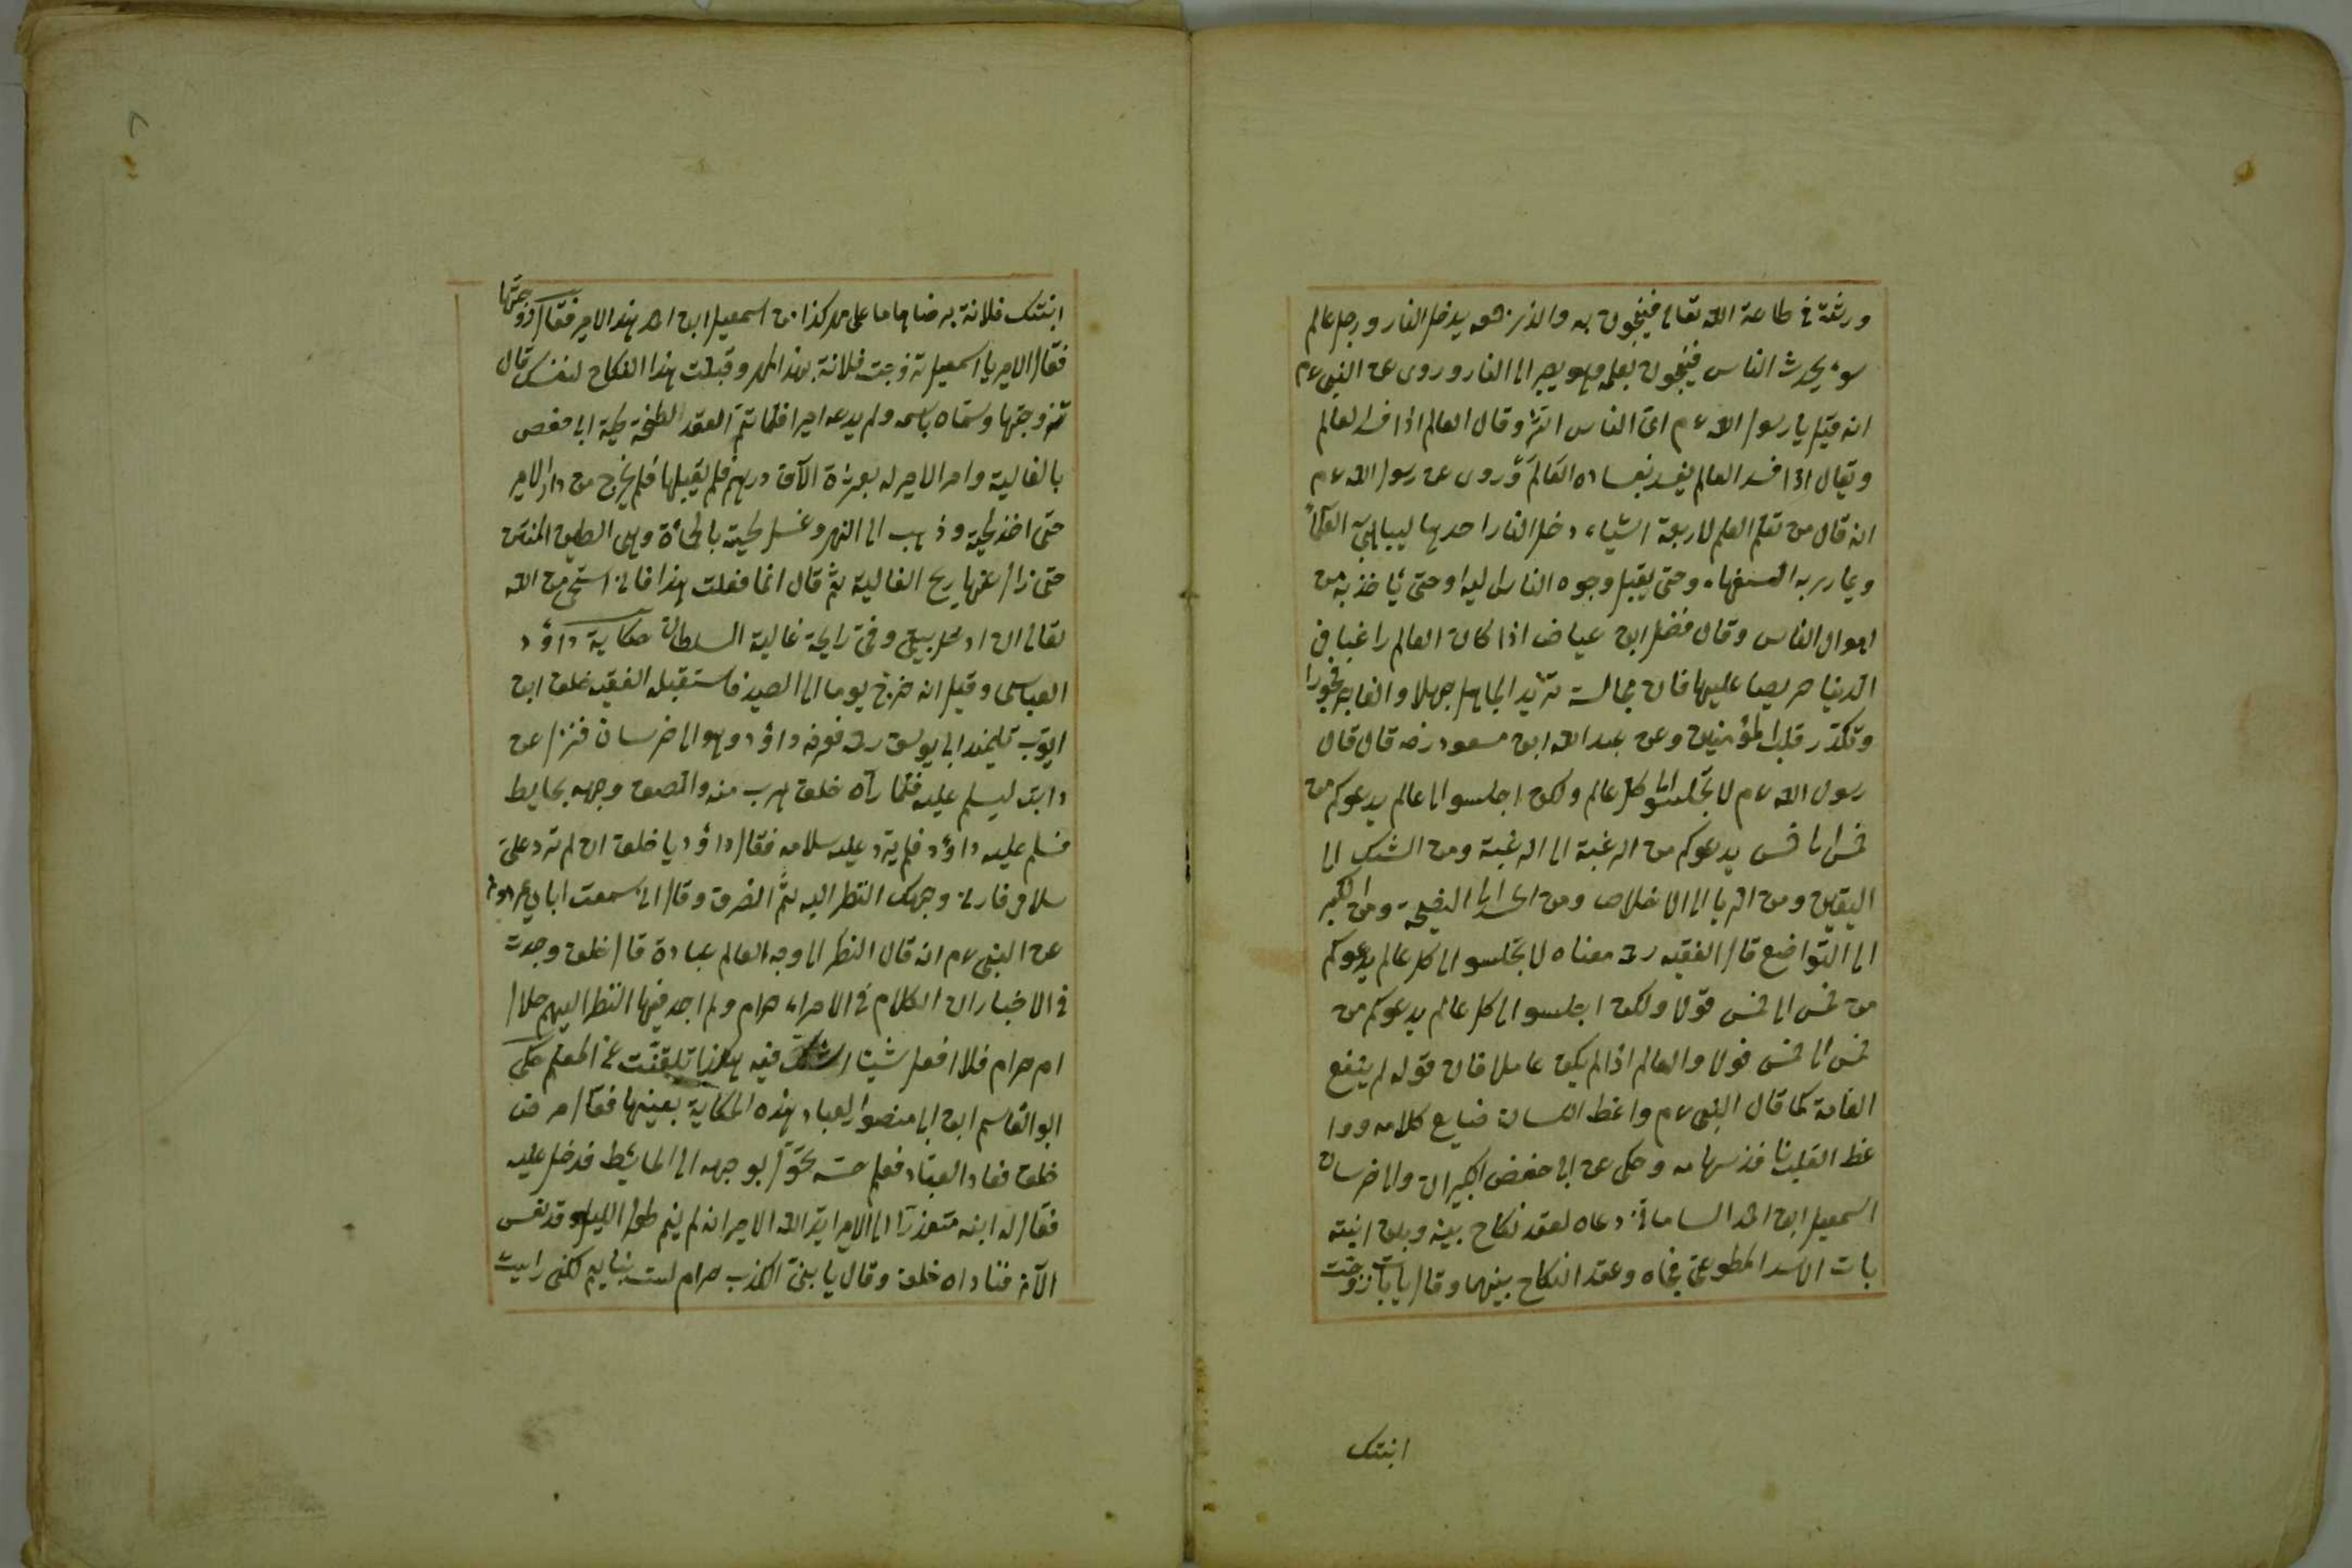 ورثة في طاعة الله تعالى فينجون به والذي جمعه يدخل النار ورجل عالم
سوء يحدث الناس فينجون بعلمه وهو يصير الى النار وروى عن النبى عم
انه قيل يا رسول الله عم اى الناس اشر وقال العالم اذا فسد العالم
ويقال اذا فسد العالم يفسد بفساده العالم وروى عن رسول الله عم
انه قال من تعلم العلم لاربعة اشياء دخل النار احدها ليباهى به العلماء
ويمارى به السفهاء وحتى يقبل وجوه الناس اليه او حتى يأخذ به من
اموال الناس وقال فضل ابن عياض اذا كان العالم راغبا فى
الدنيا حريصا عليها فان مجالسته تزيد الجاهل جهلا والفاجر فجورا
وتكدر قلب المؤمنين وعن عبد الله ابن مسعود رضه قال قال
رسول الله عم لا تجلسوا الى كل عالم ولكن اجلسوا الى عالم يدعوكم من
خمس الى خمس يدعوكم من الرغبة الى الرغبة ومن الشك الى
اليقين ومن الريا الى الاخلاص ومن الى النصيحة ومن الكبر
الى التواضع قال الفقيه رح معناه لا تجلسوا الى كل عالم يدعوكم
من خمس الى خمس قولا ولكن اجلسوا الى كل عالم يدعوكم من
خمس الى خمس فولا والعالم اذا لم يكن عاملا فان قوله لم ينفع
العامة كما قال النبى عم واعظ اللسان ضايع كلامه ووا
عظ القلب نافذ سهامه وحكى عن ابى حفص الكبير ان والى خرسان
اسمعيل ابن احمد السامانى دعاه لعقد نكاح بينه وبين ابنته
بات الاسد المطوعى فجاه وعقد النكاح بينهما وقال يا بات زوجت
ابنتك
ابنتك فلانة برضاها على مهر كذا من اسمعيل ابن احمد هذا الامير فقال زوجتها
فقال الامير يا اسمعيل تزوجت فلانة بهذا المهر وقبلت هذا النكاح لنفسك قال
تزوجتها وسماه باسمه ولم يدعه اميرا فلما تم العقد لطخ لحية ابى حفص
بالغالية وامر الامير له بعشرة الآف درهم فلم يقبلها فلم يخرج من دار الامير
حتى اخذ لحيته وذهب الى النهر وغسل لحيته بالحمأة وهى الطين المنتن
حتى زال عنها ريح الغالية ثم قال انما فعلت هذا فانى استحى من الله
تعالى ان ادخل بيتى وفى رايحة غالية السلطان حكاية داؤد
العباسى وقيل انه خرج يوما الى الصيد فاستقبله الفقيه خلف ابن
ايوب تلميذ ابى يوسف رح فعرفه داؤد وهو الى خرسان فنزل عن
دابته ليسلم عليه فلما رآه خلف هرب منه والصق وجهه بحايط
فسلم عليه داؤد فلم يرد عليه سلامه فقال داؤد يا خلف ان لم ترد على
سلامى فارنى وجهك انظر اليه ثم انصرف وقال انى سمعت ابا
عن النبى عم انه قال النظر الى وجه العالم عبادة قال خلف وجدت
فى الاخبار ان الكلام فى الامراء حرام ولم اجد فيها النظر اليهم حلال
ام حرام فلا افعل شيئا اشك فيه هكذا تلقنت عن المعلم حكى
ابو القاسم ابن ابى منصور العباد هذه الحكاية بعينها فقال مرض
خلف فعاد العباد فعلم حسه تحول بوجهه الى الحائط فدخل عليه
فقال له ابنه متعذرا الى الامير ايد الله الامير انه لم ينم طول الليل وقد نعس
الآن فناداه خلف وقال يا بنى الكذب حرام لست بنايم لكنى رايت